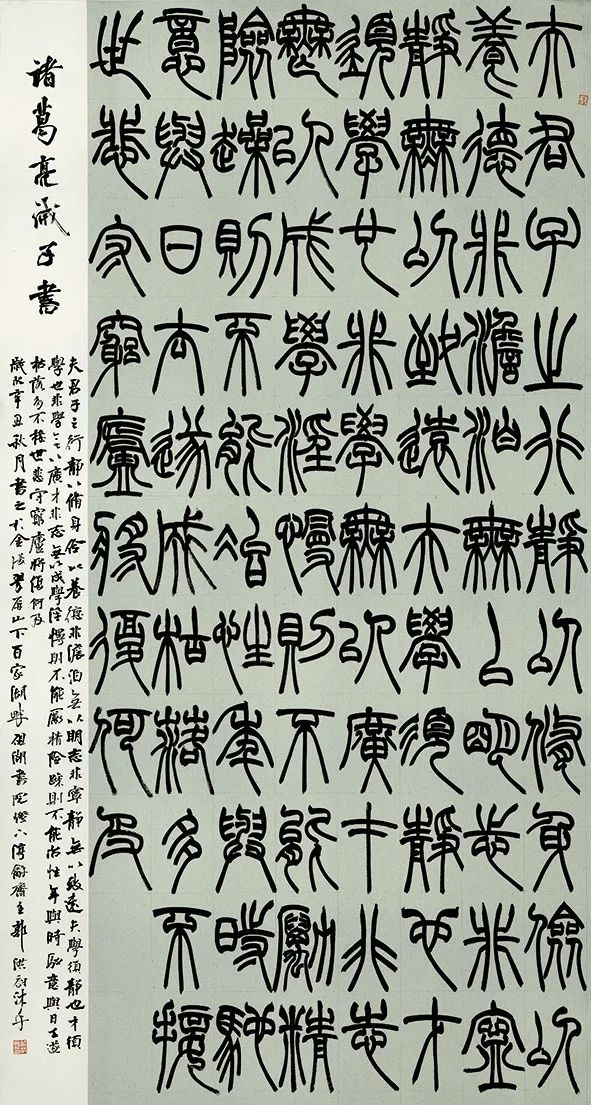 夫君子之行靜以修身儉以
養德非澹泊無以明志非寧
靜無以致遠夫學須靜也才
須學也非學無以廣才非志
無以成學淫慢則不能勵精
險躁則不能治性年與時馳
意與日去遂成枯落多不接
世悲守窮廬將復何及
諸葛亮誡子書
夫君子之行靜以脩身儉以養德非澹泊無以明志非寧靜無以致遠夫學須靜也才須
學也非學無以廣才非志無以成學淫慢則不能勵精險躁則不能治性年與時馳意與日去遂
枯落多不接世悲守窮廬將復何及
歲次辛丑秋月書之於金陵翠屏山下百家湖畔湖書院齋主洪沐手